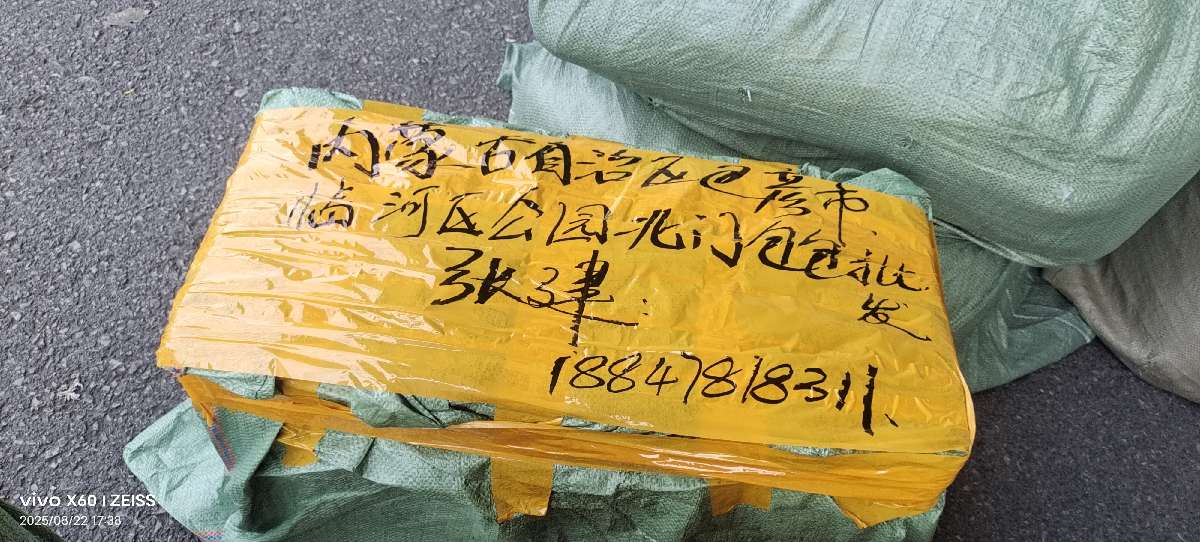 内蒙古自治区巴彦市
临河区公园北门包包批
发
张建
18847818311
vivo X60 | ZEISS
2025/08/22 17:38